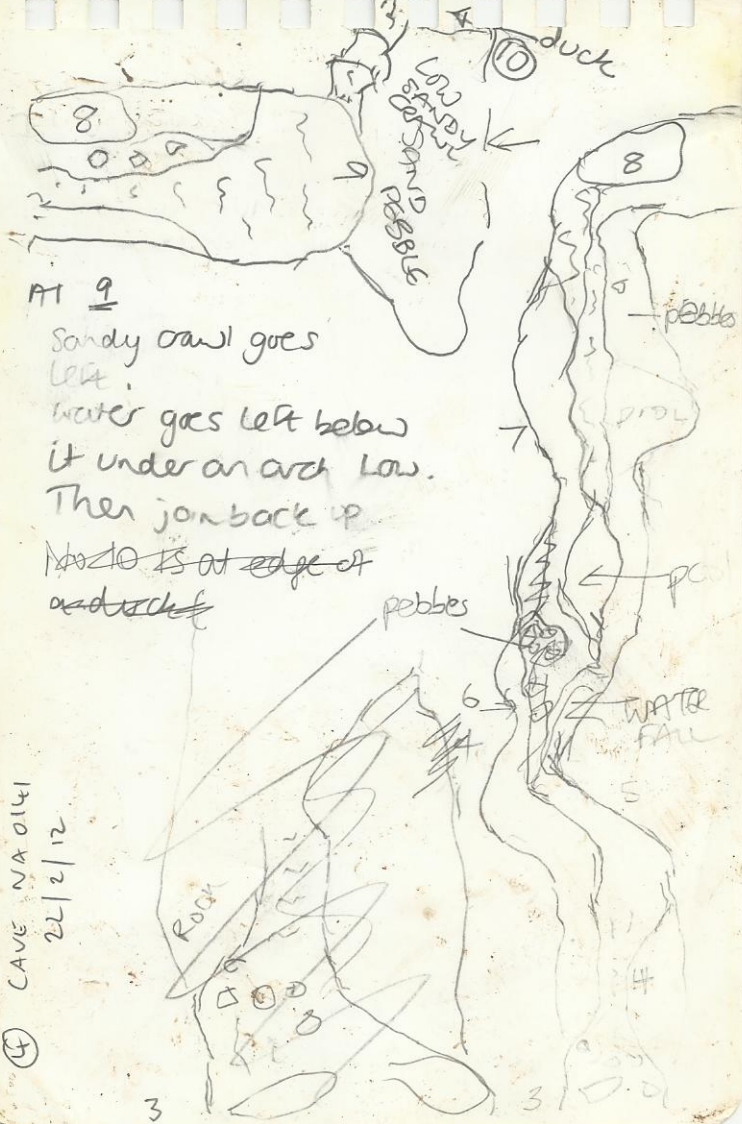 10 duck
LOW
SANDY
CRAWL
SAND
PEBBLE
8
9
8
AT 9
Sandy crawl goes
left.
water goes left below
it under an arch Low.
Then join back up
No 10 is at edge of
pebbles
pool
pebbles
6
WATER
FALL
4
5
ROCK
4
3
3
CAVE NA 0141
22/2/12
4